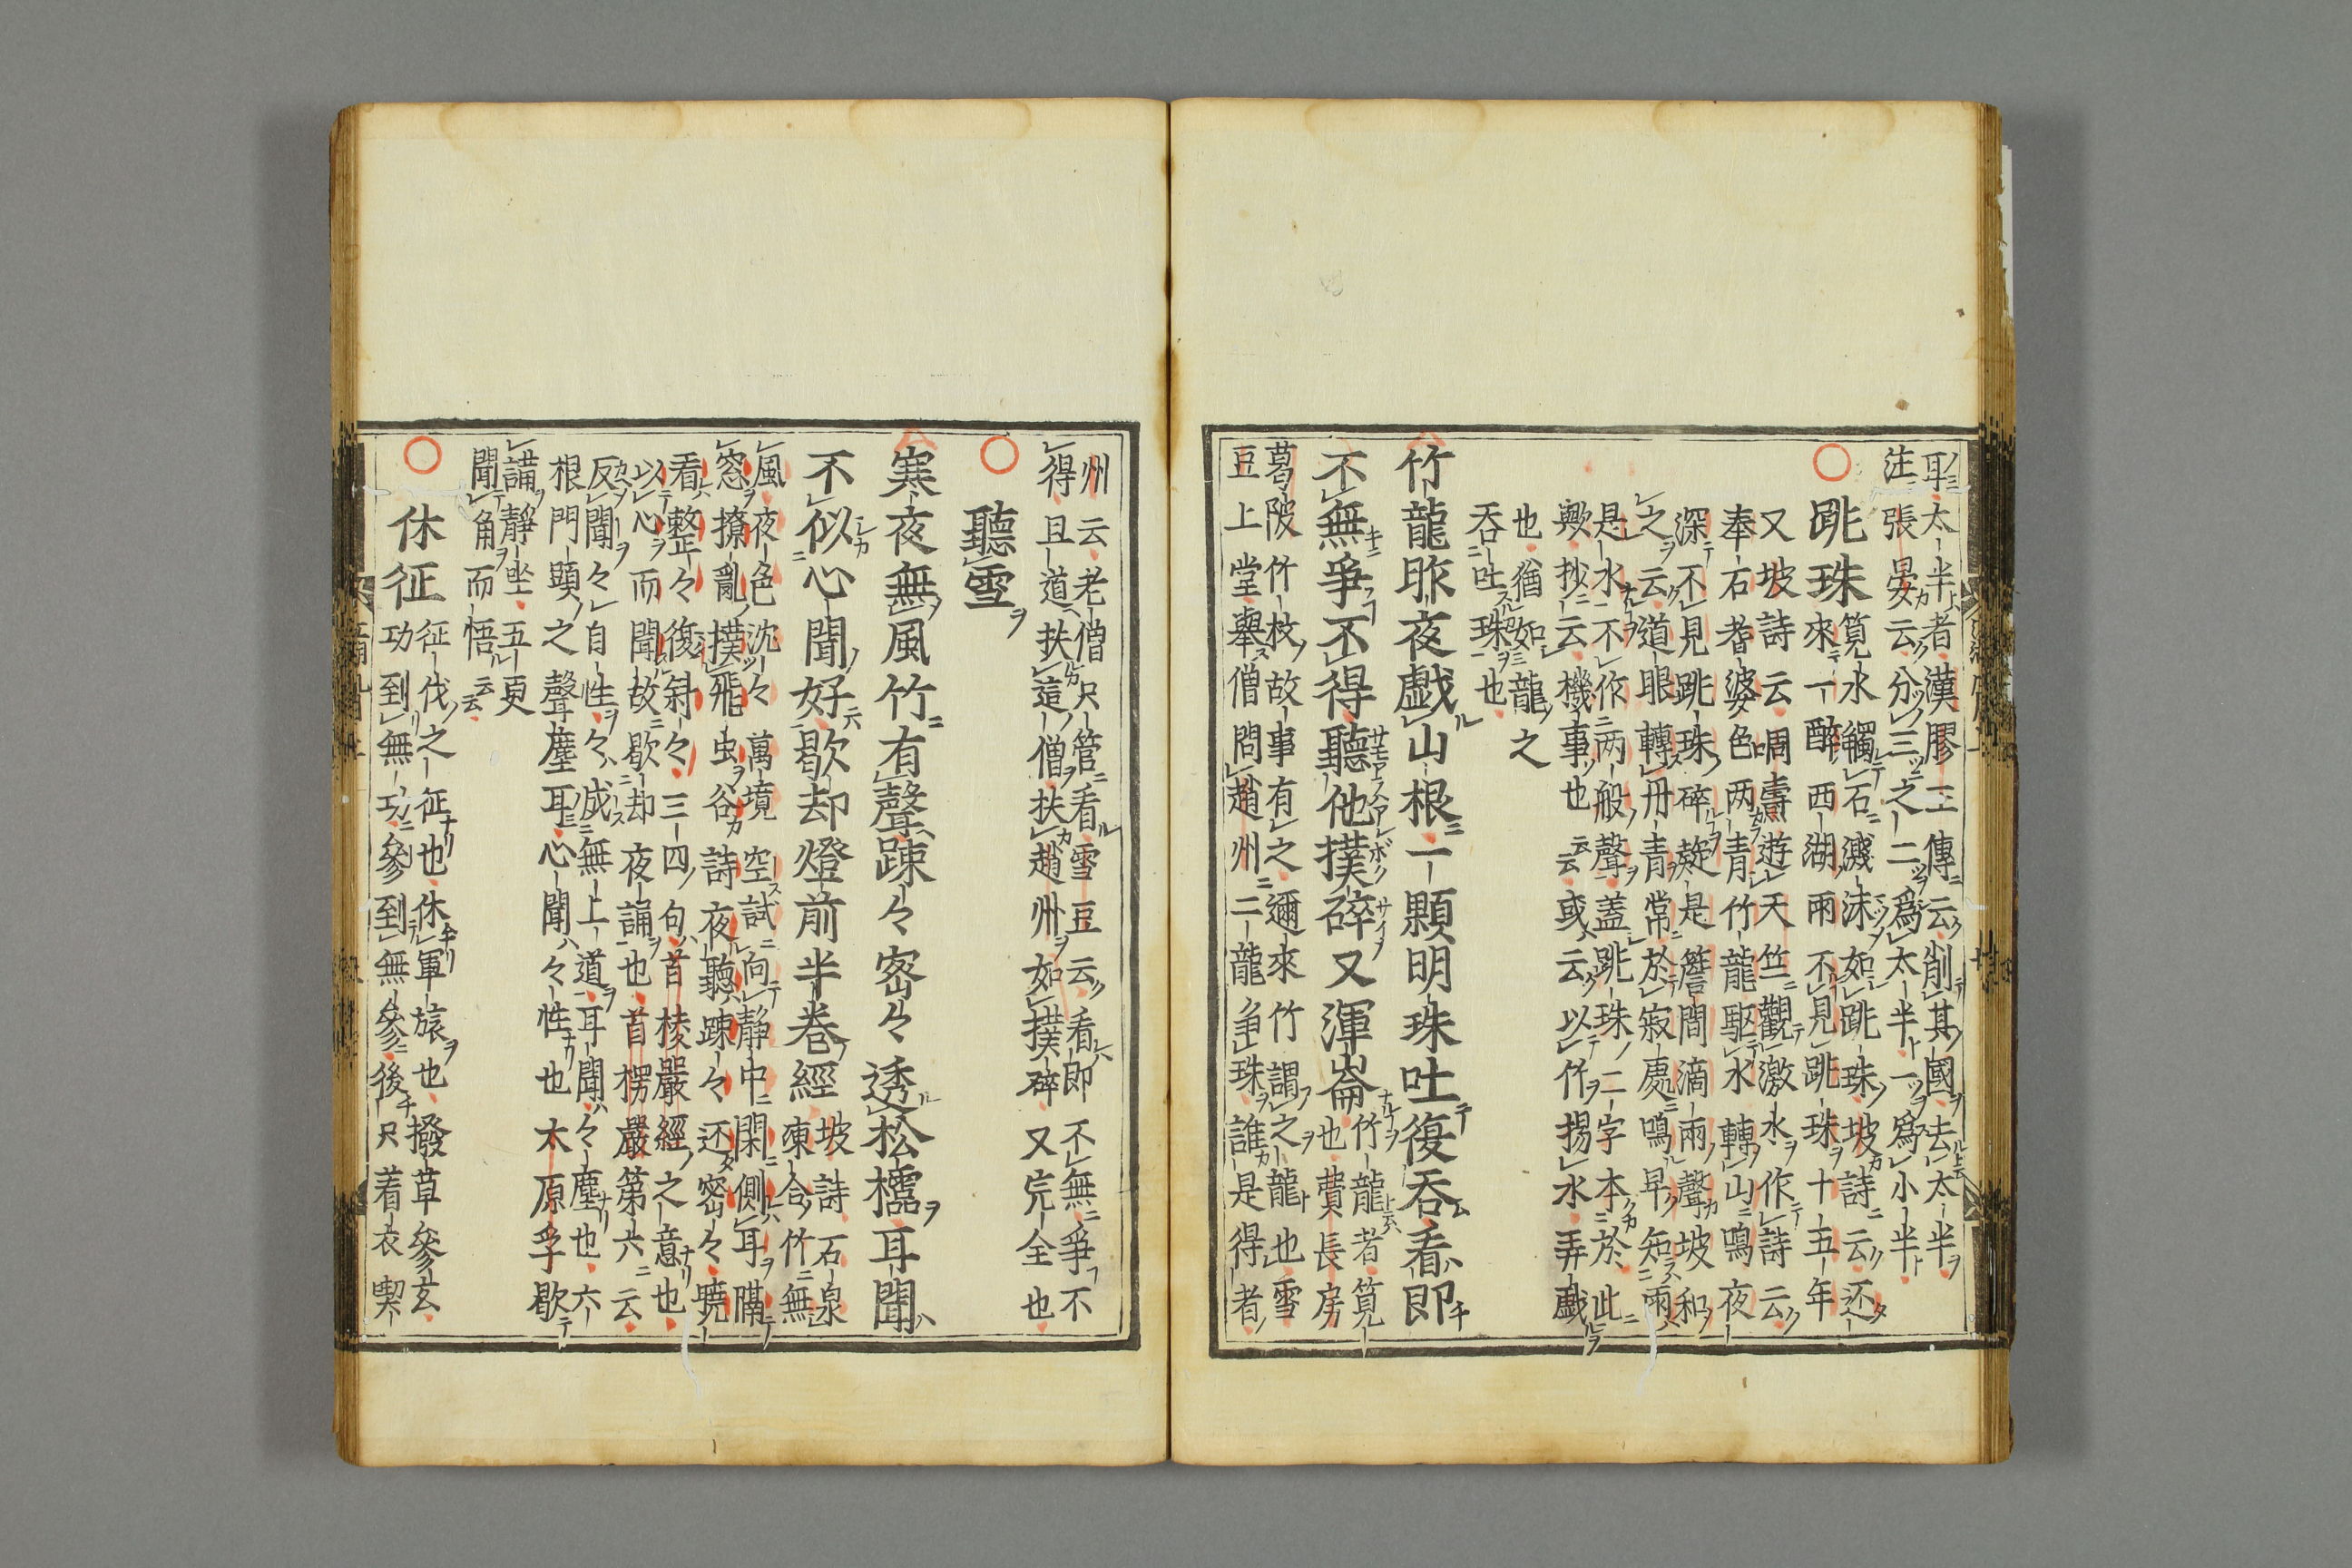 耳太半者漢膠王傳云削其國去太半
注張晏云分三之二爲太半一爲小半
跳珠
筧水觸石濺沫如跳珠坡詩云还
來一醉西湖雨不見跳珠十五年
又坡詩云周壽遊天竺觀激水作詩云
奉石耆婆色两青竹龍駆水轉山鳴夜
深不見跳珠碎疑是簷間滴雨聲坡和
之云道眼轉丹青常於寂處鳴早知雨
是水不作两般聲蓋跳珠二字本於此
歟抄云機事也云云或云以竹揚水弄戯
也猶如龍之
吞吐珠也
竹龍昨夜戯山根一顆明珠吐復吞看即
不無爭不得聽他撲碎又渾崙
竹龍者筧
也費長房
葛陂竹杖故事有之邇來竹謂之龍也雪
豆上堂舉僧問趙州二龍爭珠誰是得者
州云老僧只管看雪豆云看即不無爭不
得且道扶這僧扶趙州如撲碎又完全也
聽雪
寒夜無風竹有聲踈々密々透松櫺耳聞
不似心聞好歇却燈前半巻經
坡詩石泉
凍合竹無
風夜色沈々萬境空試向靜中閑側耳隔
窓撩亂撲飛虫谷詩夜聽踈々还密々曉
看整々復斜々三四句首棱嚴經之意也
以心而聞故歇却夜誦也首楞嚴第六云
反聞々自性々成無上道耳聞々塵也六
根門頭之聲塵耳心聞々性也太原孚歇
誦靜坐五更
聞角而悟云云
休征
征伐之征也休軍旅也撥草參玄
功到無功參到無參後只着衣喫